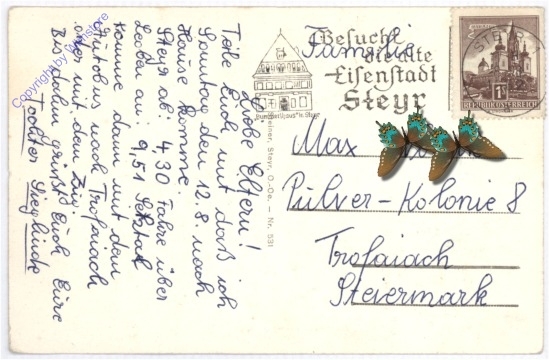 Liebe Eltern!
Teile Euch mit daß ich
Samstag den 12. 8. nach
Hause komme.
Steyr ab: 4,30 Fahre über
Leoben an: 9,51
komme dann mit dem
Autobus nach Trofaiach
oder mit dem Zug.
Bis dahin grüßt Euch Eure
Tochter Sieglinde
Copyright by
Besucht
die alte
Eisenstadt
Steyr
Bummerlhaus in Steyr
STEYR
1S
REPUBLIK ÖSTERREICH
Steyr, O.-Oe. – Nr. 531
Familie
Max
Pulver-Kolonie 8
Trofaiach
Steiermark